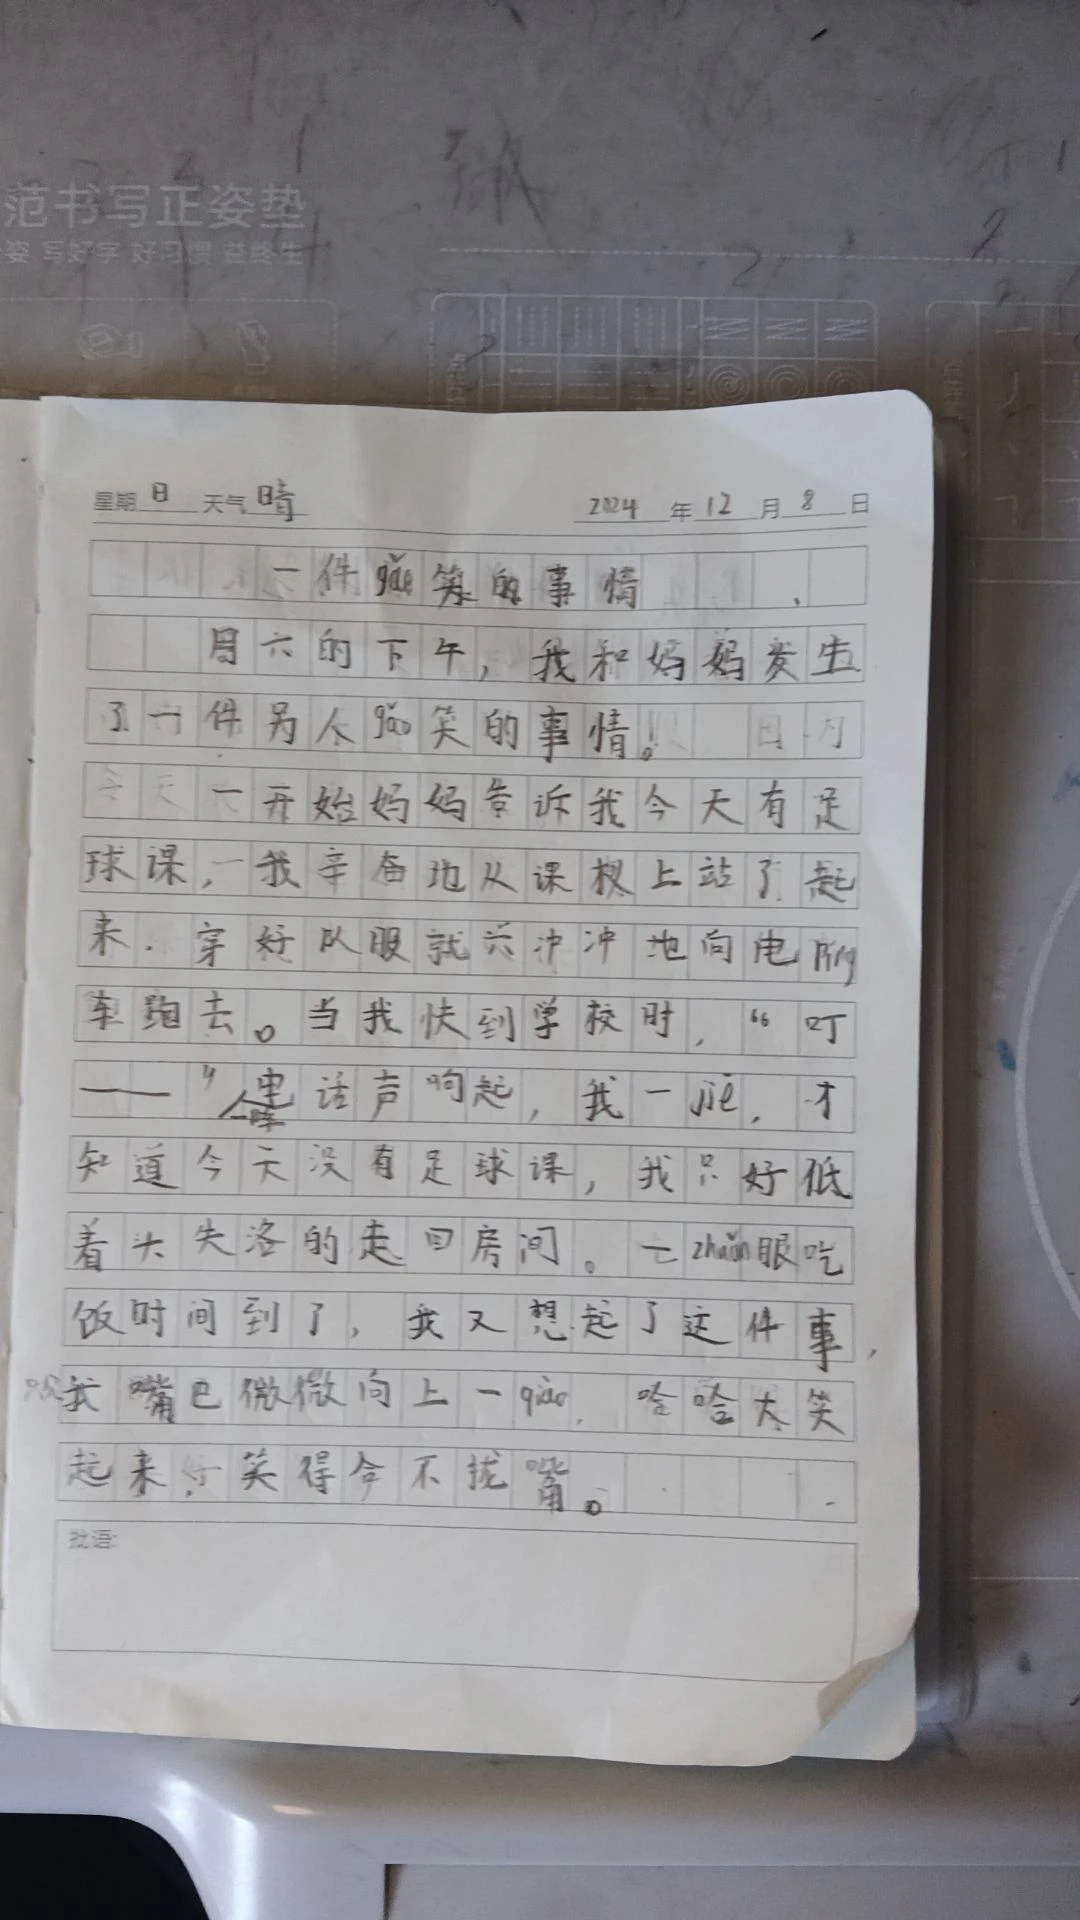 范书写正姿垫
姿 写好字 好习惯 益终生
星期 日 天气 晴 2024 年 12 月 8 日
一件gǎo笑的事情
周六的下午，我和妈妈发生
了一件另人gǎo笑的事情。
一开始妈妈告诉我今天有足
球课，我辛奋地从课桌上站了起
来．穿好队服就兴冲冲地向电
车跑去。当我快到学校时，“叮
——”一阵电话声响起，我一jiē，才
知道今天没有足球课，我只好低
着头失洛的走回房间。一zhuǎn眼吃
饭时间到了，我又想起了这件事，
我嘴巴微微向上一qiào，哈哈大笑
起来，笑得合不拢嘴。
批语: